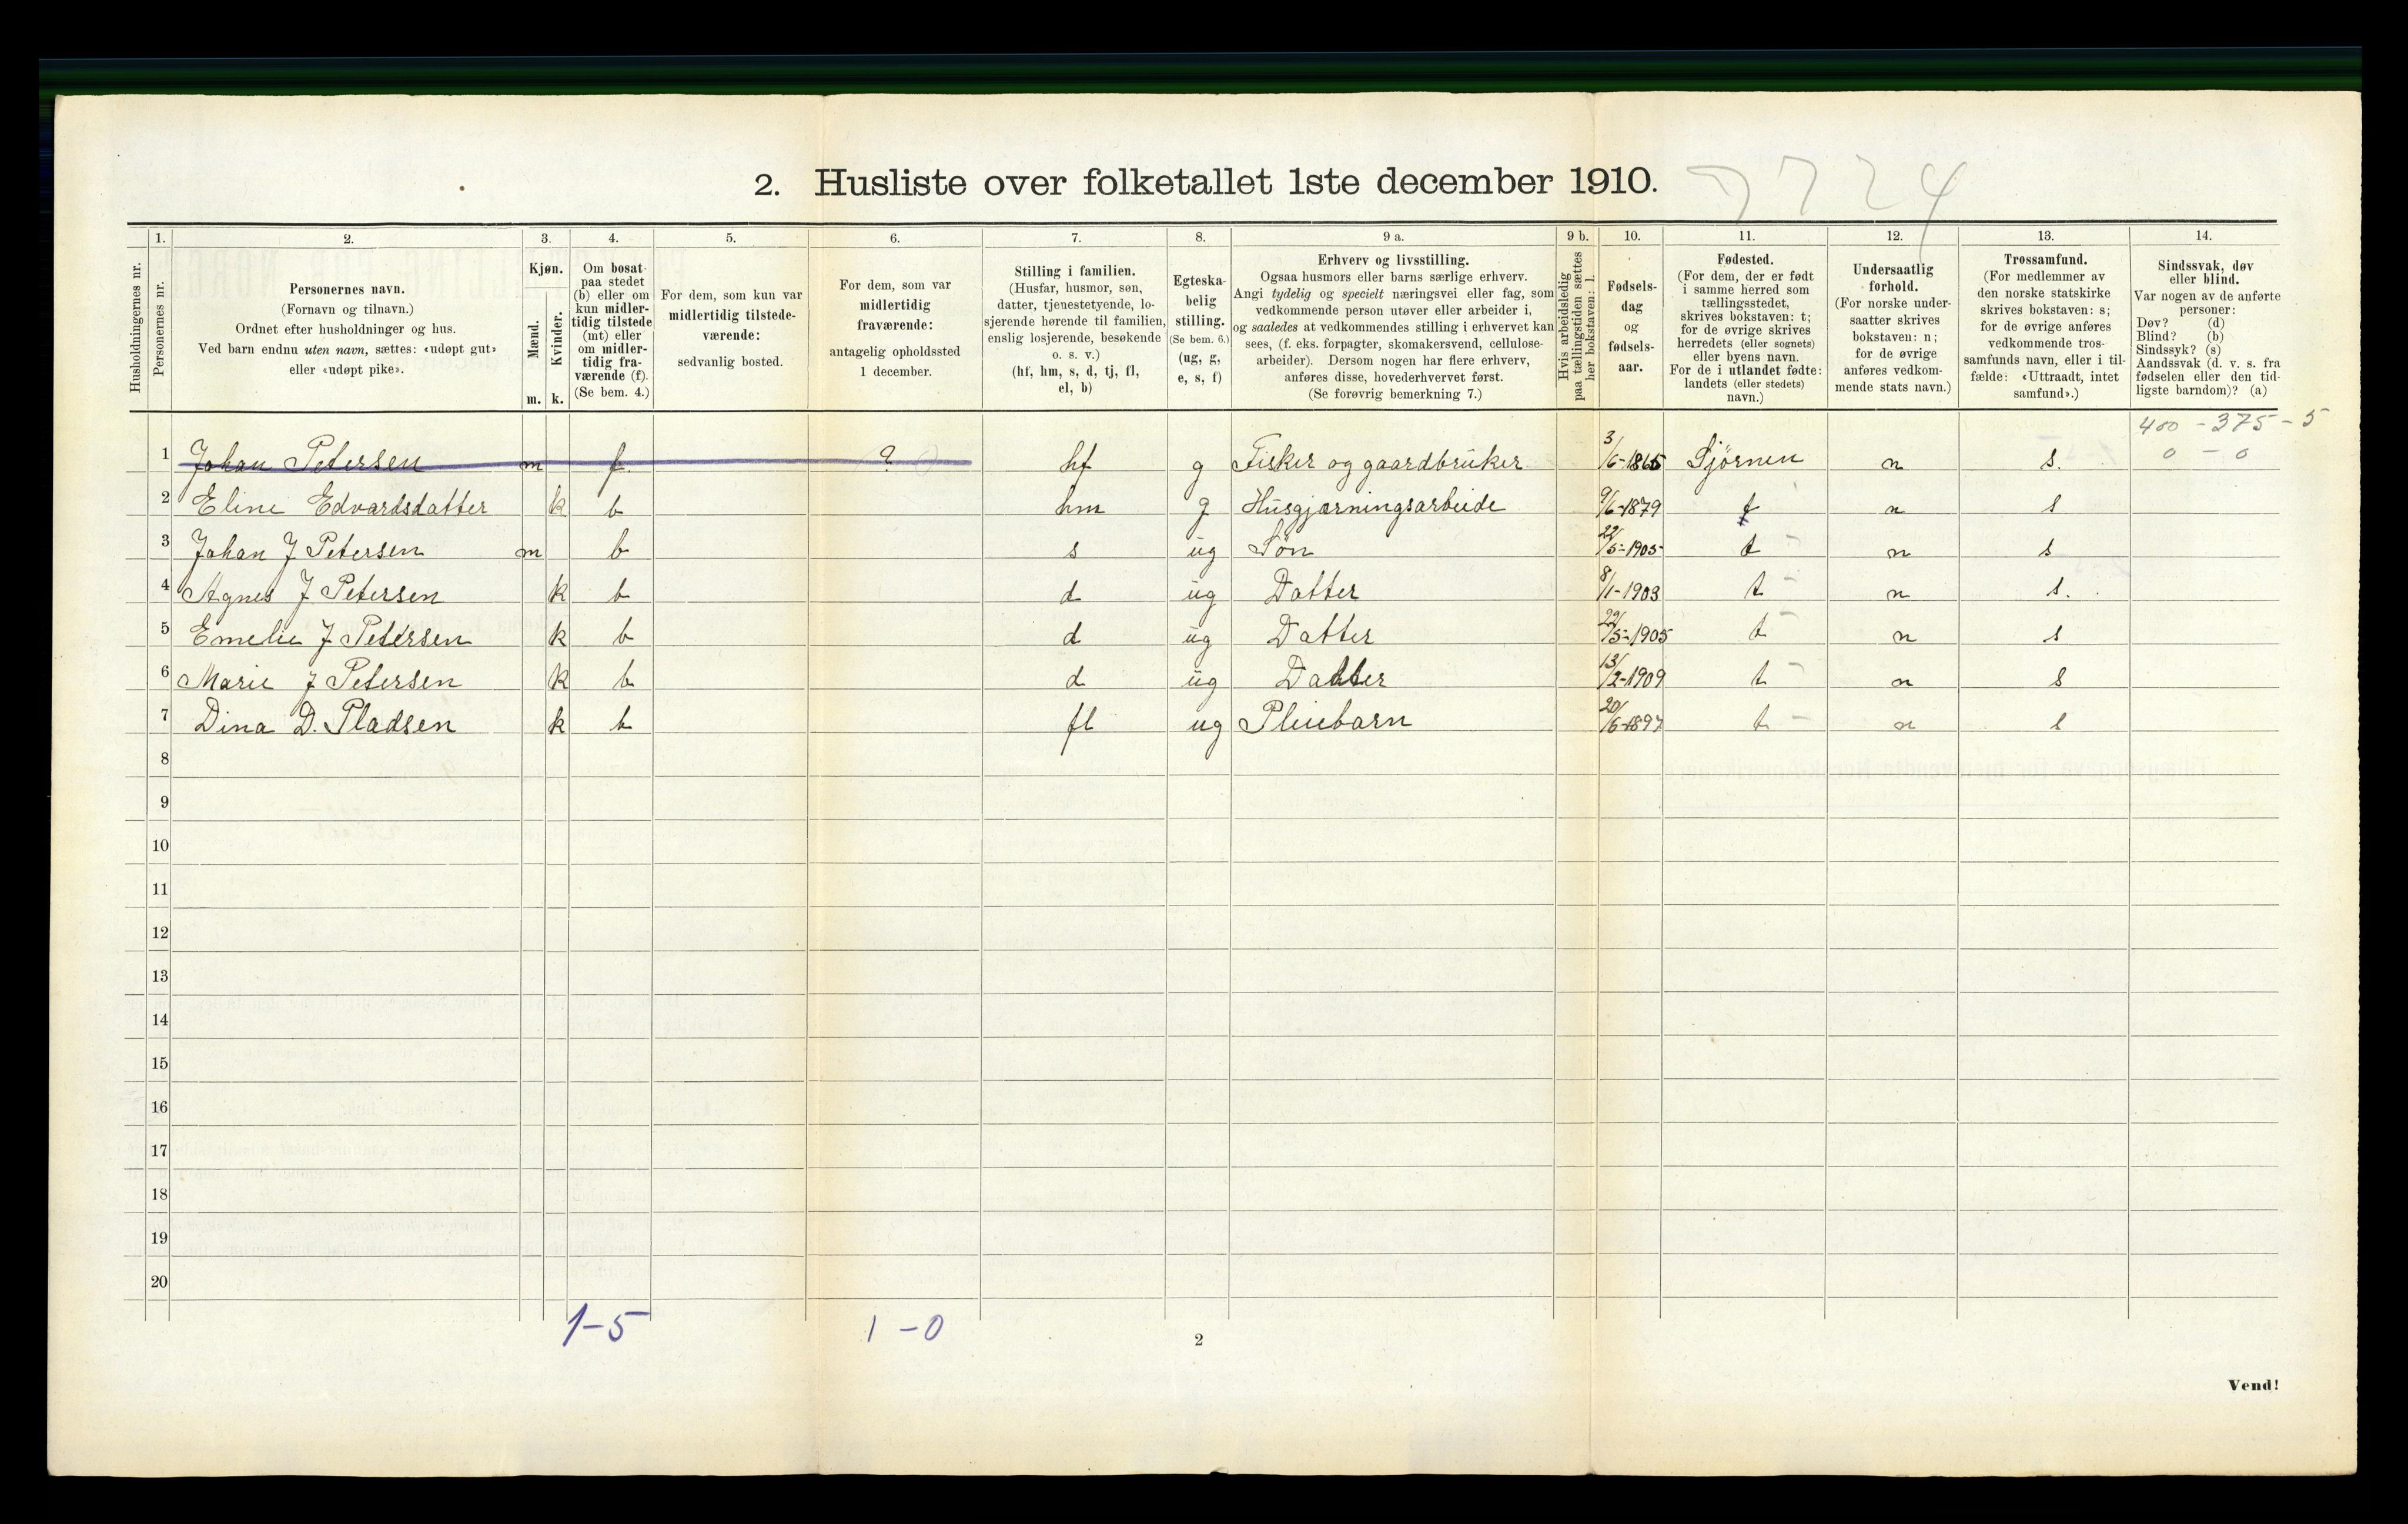 2. Husliste over folketallet 1ste december 1910.
7724
Husholdningernes nr.
1.
Personernes nr.
2.
Personernes navn.
(Fornavn og tilnavn.)
Ordnet efter husholdninger og hus.
Ved barn endnu uten navn, sættes: «udøpt gut»
eller «udøpt pike».
3.
Kjøn.
Mænd.
Kvinder.
m. k.
4.
Om bosat
paa stedet
(b) eller om
kun midler-
tidig tilstede
(mt) eller
om midler-
tidig fra-
værende (f).
(Se bem. 4.)
5.
For dem, som kun var
midlertidig tilstede-
værende:
sedvanlig bosted.
6.
For dem, som var
midlertidig
fraværende:
antagelig opholdssted
1 december.
7.
Stilling i familien.
(Husfar, husmor, søn,
datter, tjenestetyende, lo-
sjerende hørende til familien,
enslig losjerende, besøkende
o. s. v.)
(hf, hm, s, d, tj, fl,
el, b)
8.
Egteska-
belig
stilling.
(Se bem. 6.)
(ug, g,
e, s, f)
9 a.
Erhverv og livsstilling.
Ogsaa husmors eller barns særlige erhverv.
Angi tydelig og specielt næringsvei eller fag, som
vedkommende person utøver eller arbeider i,
og saaledes at vedkommendes stilling i erhvervet kan
sees, (f. eks. forpagter, skomakersvend, cellulose-
arbeider). Dersom nogen har flere erhverv,
anføres disse, hovederhvervet først.
(Se forøvrig bemerkning 7.)
9 b.
Hvis arbeidsledig
paa tællingstiden sættes
her bokstaven: l.
10.
Fødsels-
dag
og
fødsels-
aar.
11.
Fødested.
(For dem, der er født
i samme herred som
tællingsstedet,
skrives bokstaven: t;
for de øvrige skrives
herredets (eller sognets)
eller byens navn.
For de i utlandet fødte:
landets (eller stedets)
navn.)
12.
Undersaatlig
forhold.
(For norske under-
saatter skrives
bokstaven: n;
for de øvrige
anføres vedkom-
mende stats navn.)
13.
Trossamfund.
(For medlemmer av
den norske statskirke
skrives bokstaven: s;
for de øvrige anføres
vedkommende tros-
samfunds navn, eller i til-
fælde: «Uttraadt, intet
samfund».)
14.
Sindssvak, døv
eller blind.
Var nogen av de anførte
personer:
Døv? (d)
Blind? (b)
Sindssyk? (s)
Aandssvak (d. v. s. fra
fødselen eller den tid-
ligste barndom)? (a)
400 - 375 - 5
0 - 0
1 Johan Petersen m f ? hf g Fisker og gaardbruker 3/6-1865 Sjørnen n s.
2 Eline Edvardsdatter k b hm g Husgjærningsarbeide 9/6-1879 t n s
3 Johan J Petersen m b s ug Søn 22/5-1905 t n s
4 Agnes J Petersen k b d ug Datter 8/1-1903 t n s.
5 Emelie J Petersen k b d ug Datter 22/5-1905 t n s
6 Marie J Petersen k b d ug Datter 13/2-1909 t n s
7 Dina D. Pladsen k b fl ug Pleiebarn 20/6-1897 t n s
8
9
10
11
12
13
14
15
16
17
18
19
20
1-5 1-0
2
Vend!